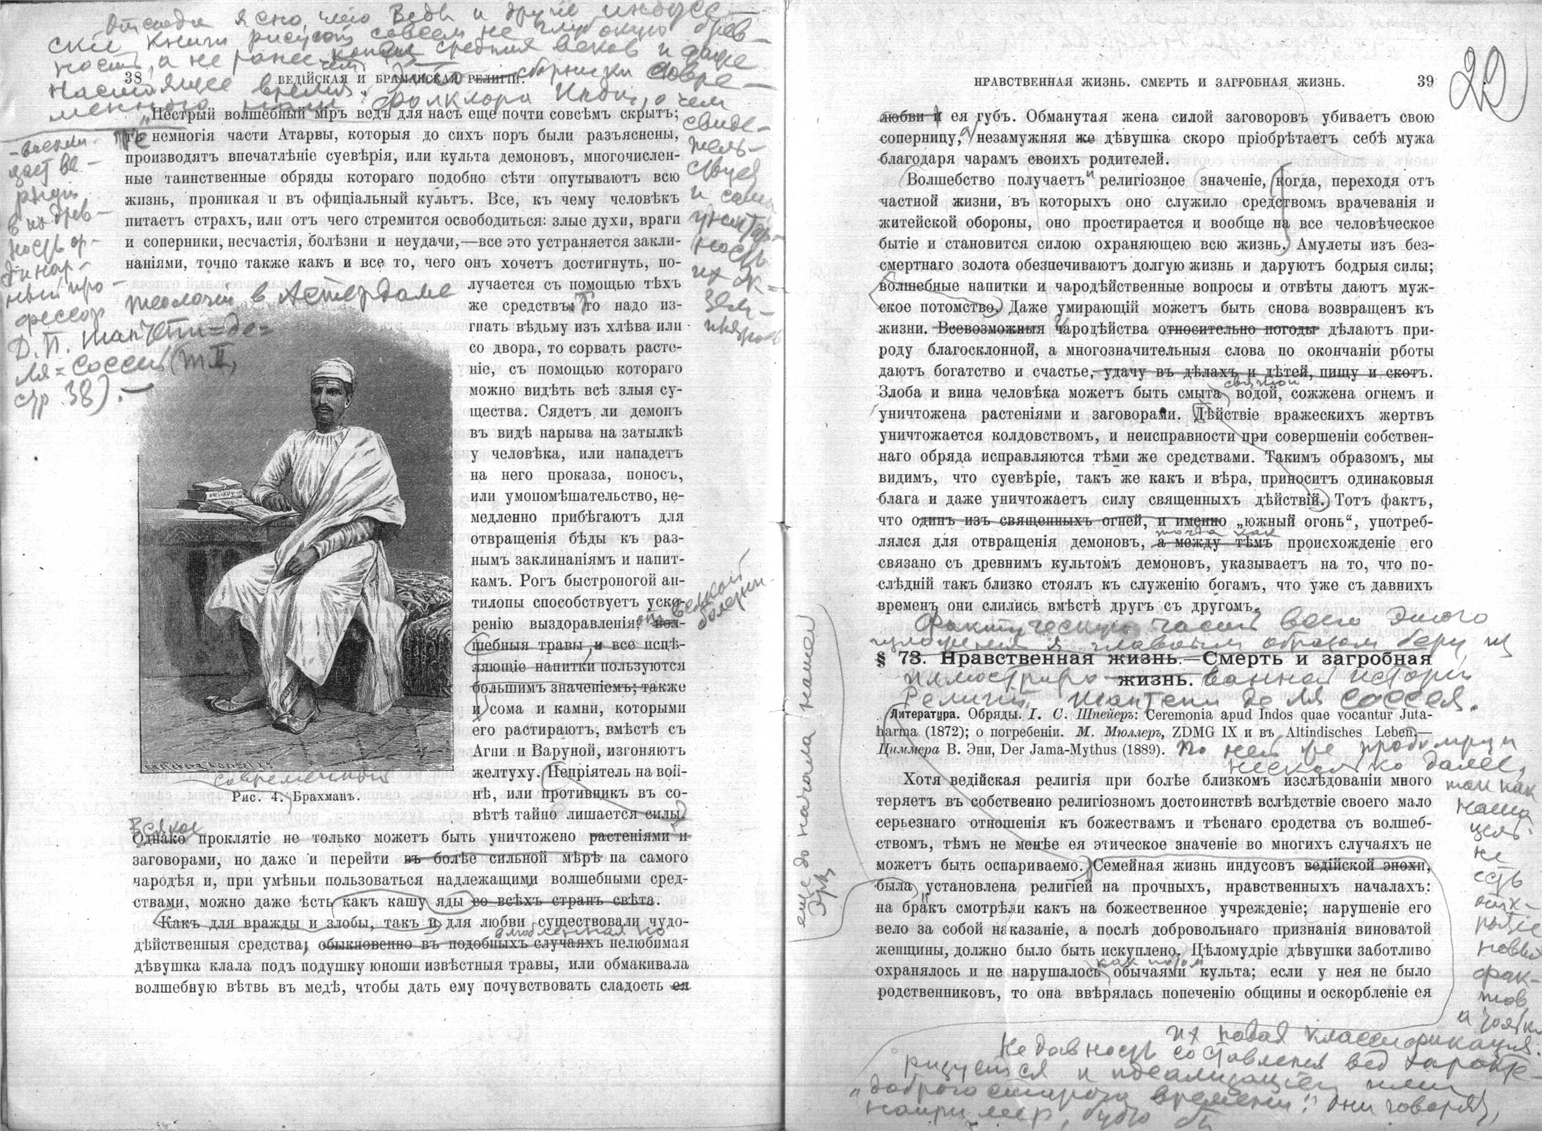 Отсюда ясно, что Веды и другие индусс-
ские книги рисуют совсем не глубокую древ-
ность, а не ранее конца средних веков и даже
настоящее время,
38 ВЕДІЙСКАЯ И БРАМАНСКАЯ РЕЛИГІИ.
сборники совре-
менного нам фольклора Индии, о чем
свиде-
тель-
ствует
и сама
„Пестрый волшебный міръ ведъ для насъ еще почти совсѣмъ скрытъ;
тѣ немногія части Атарвы, которыя до сихъ поръ были разъяснены,
производятъ впечатлѣніе суевѣрія, или культа демоновъ, многочислен-
ные таинственные обряды котораго подобно сѣти опутываютъ всю
жизнь, проникая и въ офиціальный культъ. Все, къ чему человѣкъ
питаетъ страхъ, или отъ чего стремится освободиться: злые духи, враги
и соперники, несчастія, болѣзни и неудачи,—все это устраняется закли-
наніями, точно также какъ и все то, чего онъ хочетъ достигнуть, по-
лучается съ помощью тѣхъ
же средствъ. То надо из-
гнать вѣдьму изъ хлѣва или
со двора, то сорвать расте-
ніе, съ помощью котораго
можно видѣть всѣ злыя су-
щества. Сядетъ ли демонъ
въ видѣ нарыва на затылкѣ
у человѣка, или нападетъ
на него проказа, поносъ,
или умопомѣшательство, не-
медленно прибѣгаютъ для
отвращенія бѣды къ раз-
нымъ заклинаніямъ и напит-
камъ. Рогъ быстроногой ан-
тилопы способствуетъ уско-
ренію выздоравленія; вол-
шебныя травы и все исцѣ-
ляющіе напитки пользуются
большимъ значеніемъ; также
и сома и камни, которыми
его растираютъ, вмѣстѣ съ
Агни и Варуной, изгоняютъ
желтуху. Непріятель на вой-
нѣ, или противникъ въ со-
вѣтѣ тайно лишается силы.
от всякой
болезни
профессор
теологии в Амстердаме
Д. П. Шантепи-де-
ля-Соссей (т. II,
стр. 38).—
современный
Рис. 4. Брахманъ.
Всякое
Однако проклятіе не только можетъ быть уничтожено растеніями и
заговорами, но даже и перейти въ болѣе сильной мѣрѣ на самого
чародѣя и, при умѣньи пользоваться надлежащими волшебными сред-
ствами, можно даже ѣсть какъ кашу яды со всѣхъ странъ свѣта.
Какъ для вражды и злобы, такъ и для любви существовали чудо-
дѣйственныя средства; обыкновенно въ подобныхъ случаяхъ нелюбимая
дѣвушка клала подъ подушку юноши извѣстныя травы, или обмакивала
волшебную вѣтвь въ медѣ, чтобы дать ему почувствовать сладость ея
НРАВСТВЕННАЯ ЖИЗНЬ. СМЕРТЬ И ЗАГРОБНАЯ ЖИЗНЬ. 39
любви и ея губъ. Обманутая жена силой заговоровъ убиваетъ свою
соперницу, незамужняя же дѣвушка скоро пріобрѣтаетъ себѣ мужа
благодаря чарамъ своихъ родителей.
Волшебство получаетъ религіозное значеніе, когда, переходя отъ
частной жизни, въ которыхъ оно служило средствомъ врачеванія и
житейской обороны, оно простирается и вообще на все человѣческое
бытіе и становится силою охраняющею всю жизнь. Амулеты изъ без-
смертнаго золота обезпечиваютъ долгую жизнь и даруютъ бодрыя силы;
волшебные напитки и чародѣйственные вопросы и отвѣты даютъ муж-
ское потомство. Даже умирающій можетъ быть снова возвращенъ къ
жизни. Всевозможныя чародѣйства относительно погоды дѣлаютъ при-
роду благосклонной, а многозначительныя слова по окончаніи рботы
даютъ богатство и счастье, удачу въ дѣлахъ и дѣтей, пищу и скотъ.
Злоба и вина человѣка можетъ быть смыта водой, сожжена огнемъ и
уничтожена растеніями и заговорами. Дѣйствіе вражескихъ жертвъ
уничтожается колдовствомъ, и неисправности при совершеніи собствен-
наго обряда исправляются тѣми же средствами. Такимъ образомъ, мы
видимъ, что суевѣріе, такъ же какъ и вѣра, приноситъ одинаковыя
блага и даже уничтожаетъ силу священныхъ дѣйствій. Тотъ фактъ,
что одинъ изъ священныхъ огней, и именно „южный огонь“, употреб-
лялся для отвращенія демоновъ, а между тѣмъ происхожденіе его
связано съ древнимъ культомъ демоновъ, указываетъ на то, что по-
слѣдній такъ близко стоялъ къ служенію богамъ, что уже съ давнихъ
временъ они слились вмѣстѣ другъ съ другомъ.
Фактическую часть всего этого
изложения я главным образом беру из
§ 73. Нравственная жизнь.—Смерть и загробная
жизнь.
иллюстрированной истории
религий Шантепи де ля Соссея.
Литература. Обряды. І. С. Шпейеръ: Ceremonia apud Indos quae vocantur Juta-
harma (1872); о погребеніи. М. Мюллеръ, ZDMG IX и въ Altindisches Leben,—
Циммера В. Эни, Der Jama-Mythus (1889).
По ней же пробежимся
несколько далее,
так как
наша
цель
не
есть
новых
фак-
тов,
а
их новая классификация.
Хотя ведійская религія при болѣе близкомъ изслѣдованіи много
теряетъ въ собственно религіозномъ достоинствѣ вслѣдствіе своего мало
серьезнаго отношенія къ божествамъ и тѣснаго сродства съ волшеб-
ствомъ, тѣмъ не менѣе ея этическое значеніе во многихъ случаяхъ не
можетъ быть оспариваемо. Семейная жизнь индусовъ ведійской эпохи,
была установлена религіей на прочныхъ, нравственныхъ началахъ:
на бракъ смотрѣли какъ на божественное учрежденіе; нарушеніе его
вело за собой наказаніе, а послѣ добровольнаго признанія виноватой
женщины, должно было быть искуплено. Цѣломудріе дѣвушки заботливо
охранялось и не нарушалось обычаями культа; если у нея не было
родственниковъ, то она ввѣрялась попеченію общины и оскорбленіе ея
еще до начала нашей
эры
Недавность составления вед характе-
ризуется и идеализацией ими
„доброго старого времени“. Они говорят,
например, будто бы